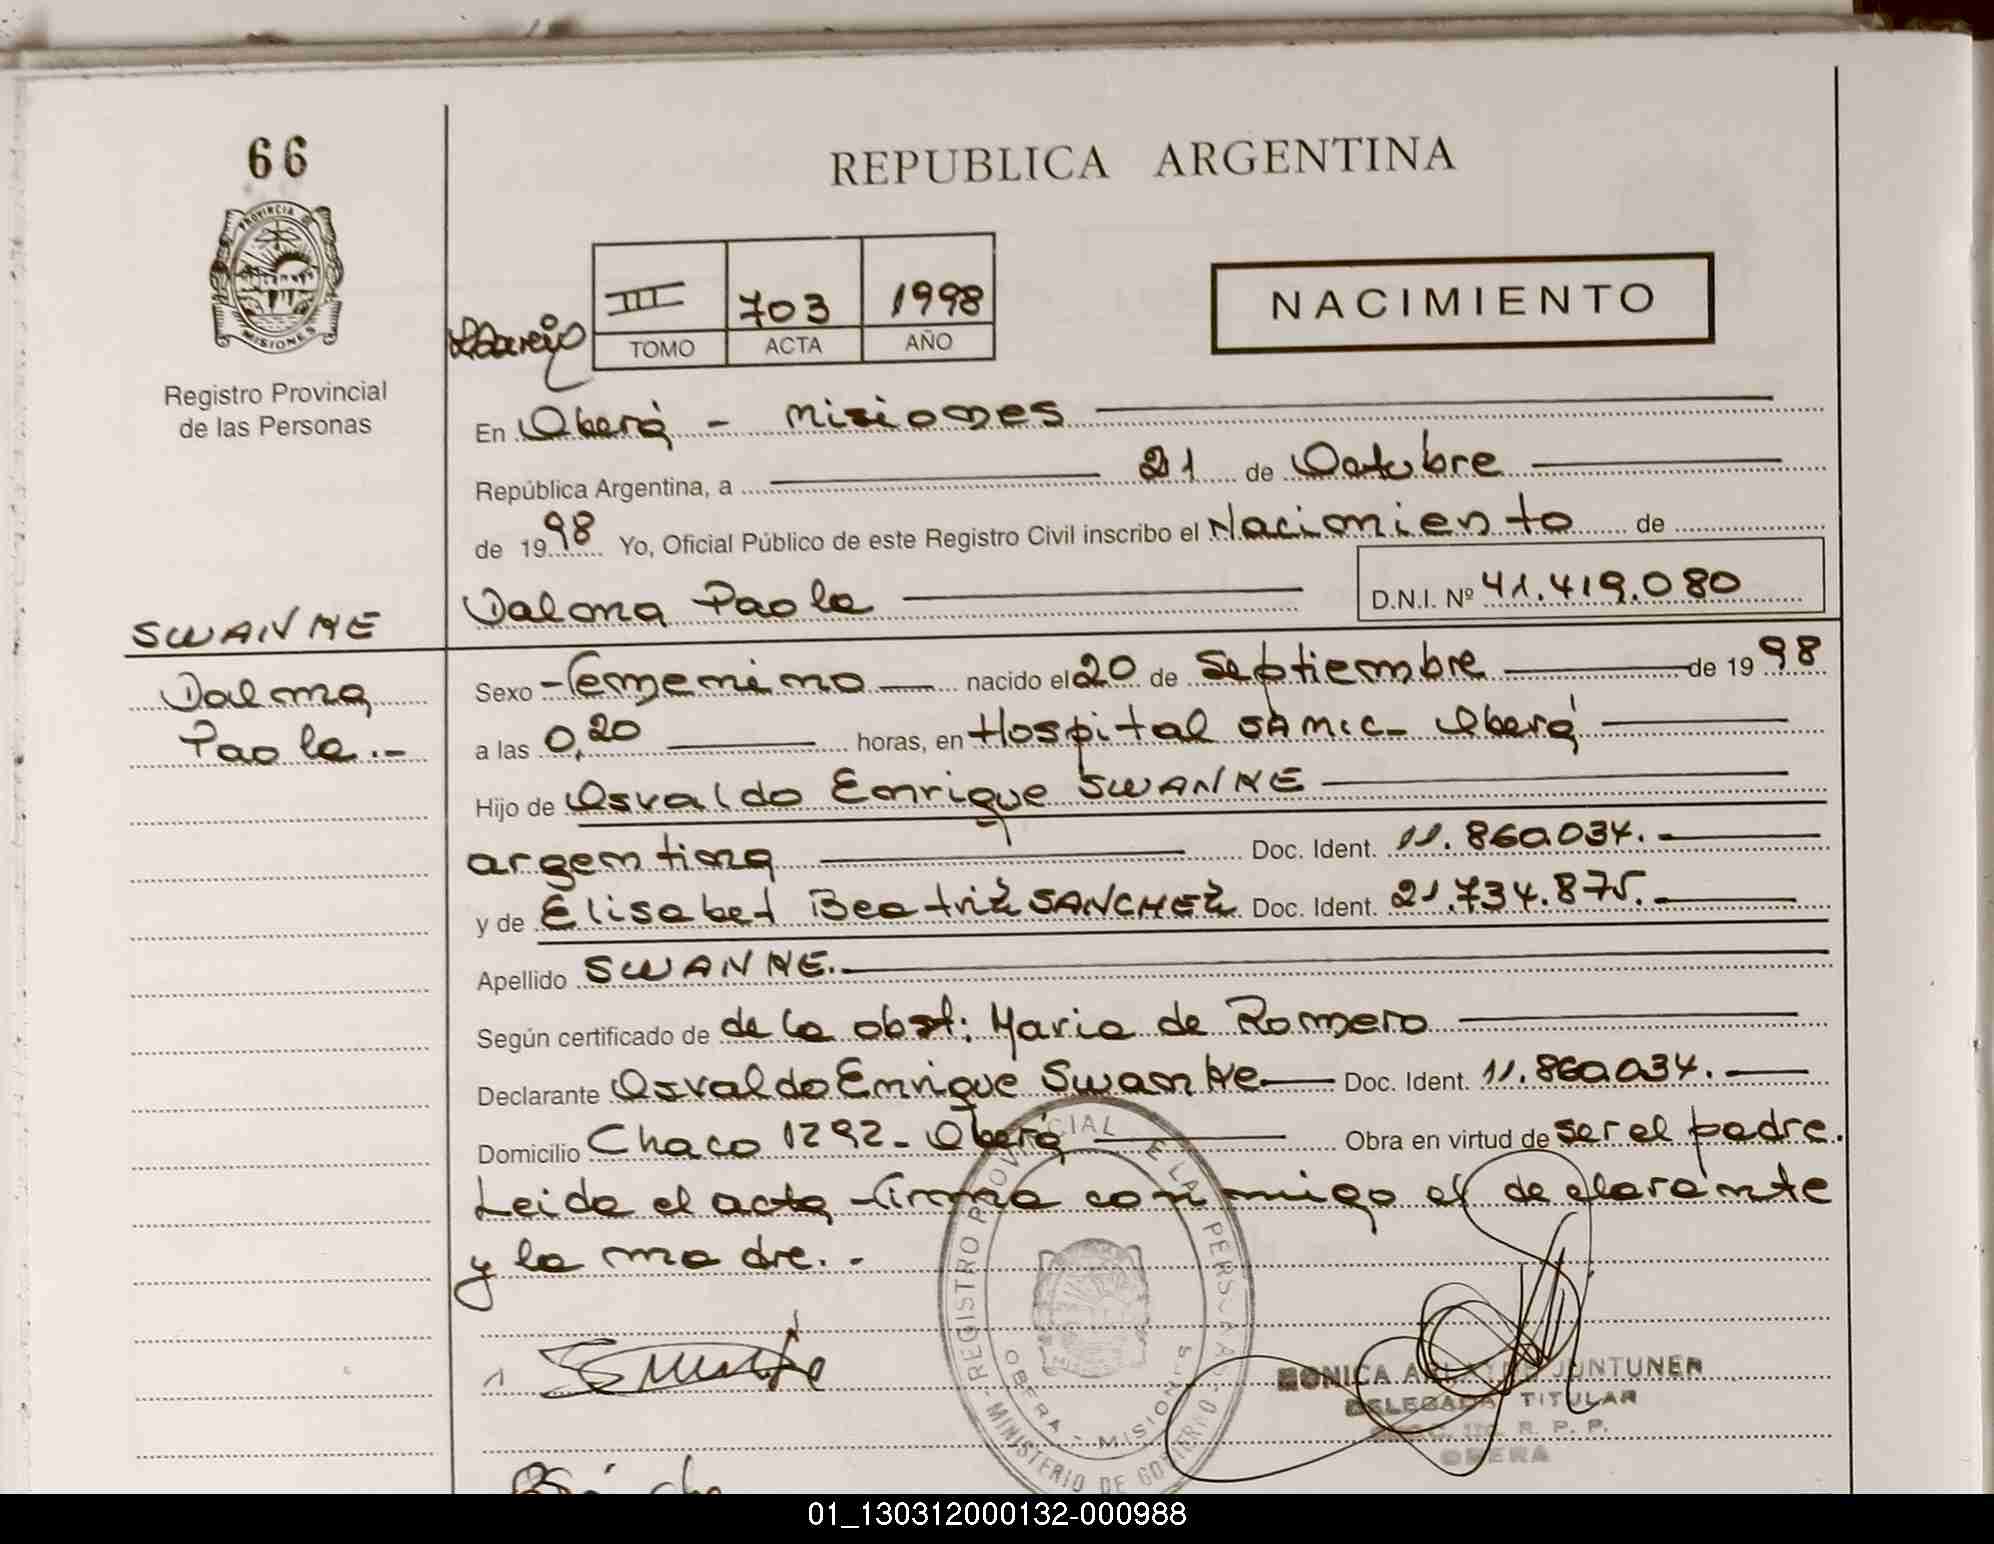 66
REPUBLICA ARGENTINA
PROVINCIA DE MISIONES
Registro Provincial
de las Personas
III 703 1998
TOMO ACTA AÑO
NACIMIENTO
En Oberá - Misiones
República Argentina, a 21 de Octubre
de 1998 Yo, Oficial Público de este Registro Civil inscribo el Nacimiento de
Dalma Paola D.N.I. Nº 41.419.080
SWANKE
Dalma
Paola.-
Sexo Femenino nacido el 20 de Septiembre de 1998
a las 0,20 horas, en Hospital SAMIC- Oberá
Hijo de Osvaldo Enrique SWANKE
argentina Doc. Ident. 11.860.034.-
y de Elisabet Beatriz SANCHEZ Doc. Ident. 21.734.875.-
Apellido SWANKE.-
Según certificado de de la obst: Maria de Romero
Declarante Osvaldo Enrique Swanke Doc. Ident. 11.860.034.-
Domicilio Chaco 1292- Oberá Obra en virtud de ser el padre.
Leida el acta firma conmigo el declarante
y la madre.-
REGISTRO PROVINCIAL DE LAS PERSONAS
MINISTERIO DE GOBIERNO
OBERA - MISIONES
MONICA JUNTUNEN
DELEGADA TITULAR
R. P. P.
OBERA
01_130312000132-000988